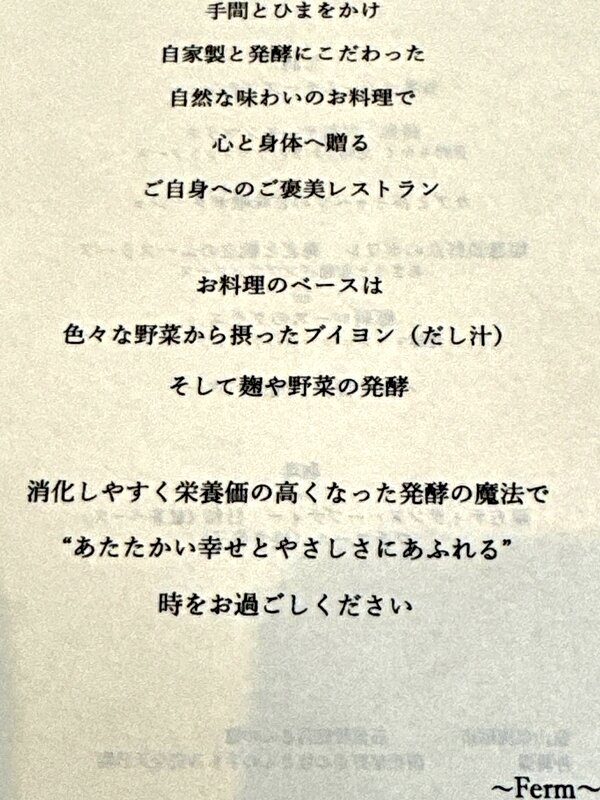 手間とひまをかけ
自家製と発酵にこだわった
自然な味わいのお料理で
心と身体へ贈る
ご自身へのご褒美レストラン
お料理のベースは
色々な野菜から摂ったブイヨン（だし汁）
そして麹や野菜の発酵
消化しやすく栄養価の高くなった発酵の魔法で
“あたたかい幸せとやさしさにあふれる”
時をお過ごしください
～Ferm～